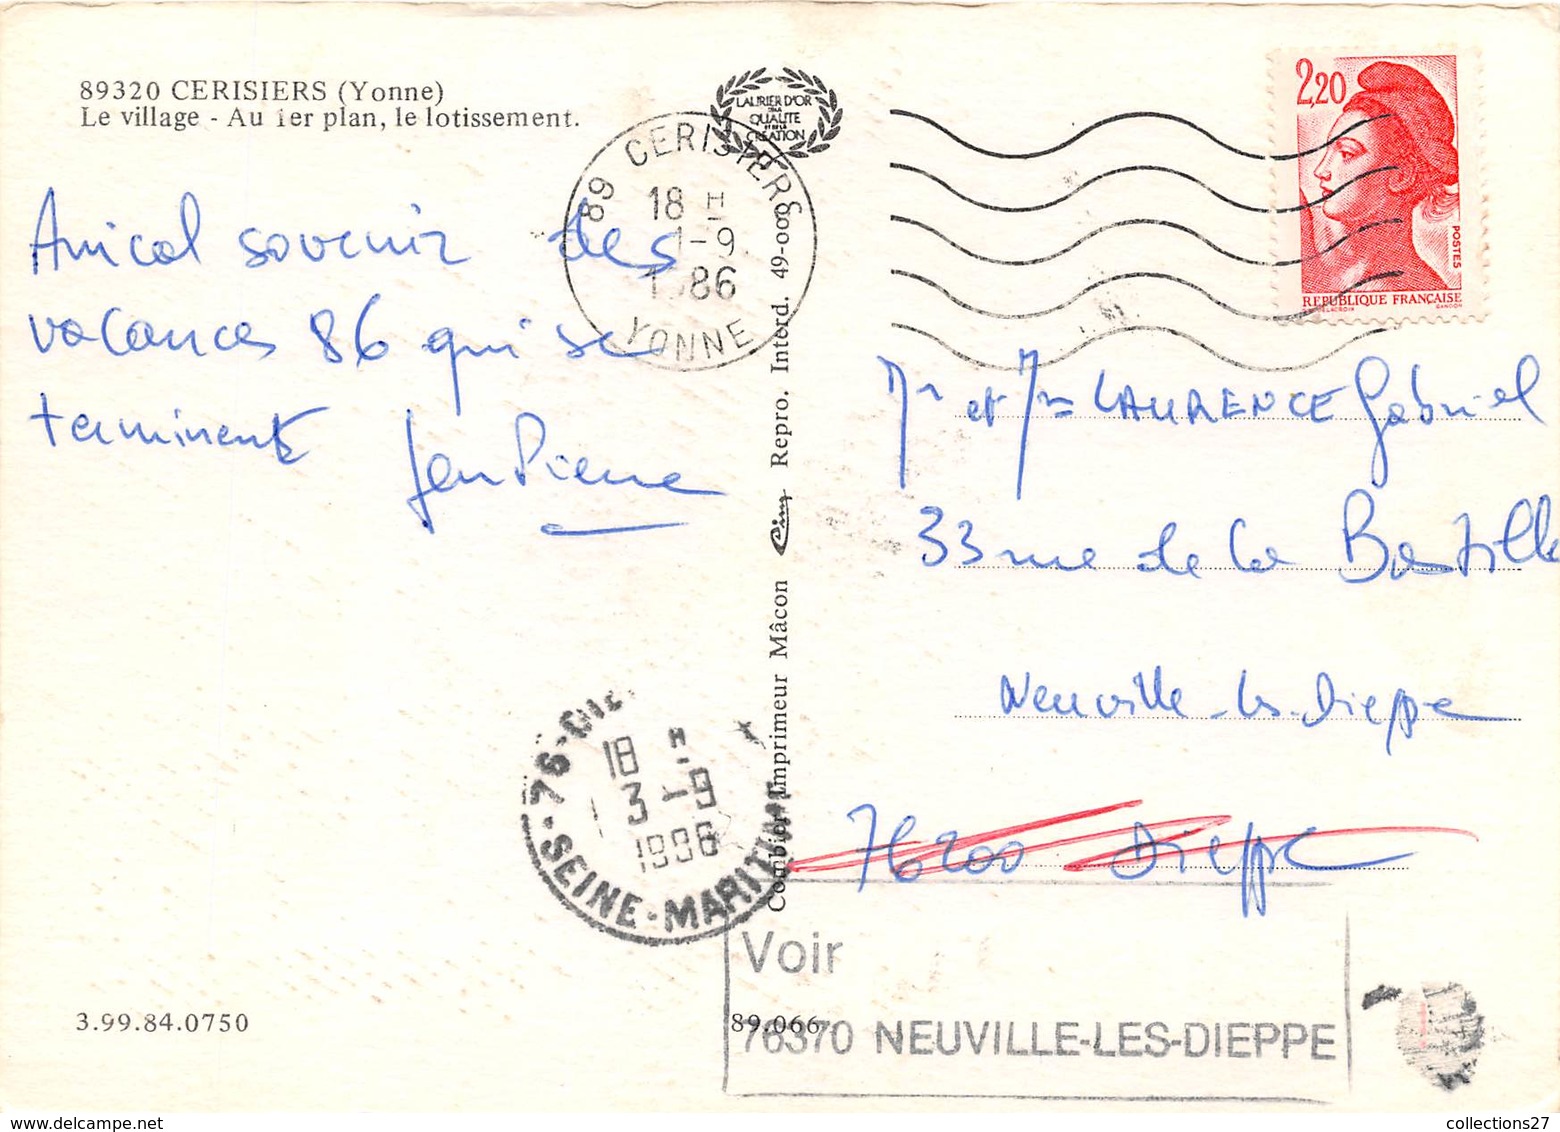 89320 CERISIERS (Yonne)
Le village - Au 1er plan, le lotissement.
LAURIER D'OR
DE LA
QUALITE
ET DE LA
CREATION
89 CERISIERS
18 H
1-9
1986
YONNE
2,20
POSTES
REPUBLIQUE FRANÇAISE
DELACROIX
GANDON
Amical souvenir des
vacances 86 qui se
terminent
Jean Pierre
Combier Imprimeur Mâcon Cim Repro. Interd. 49-000
Mr et Mme LAURENCE Gabriel
33 rue de la Bastille
Neuville-les-Dieppe
76200 Dieppe
76-DIE
18 H
3-9
1986
SEINE-MARITIME
Voir
76370 NEUVILLE-LES-DIEPPE
3.99.84.0750
89.066
collections27